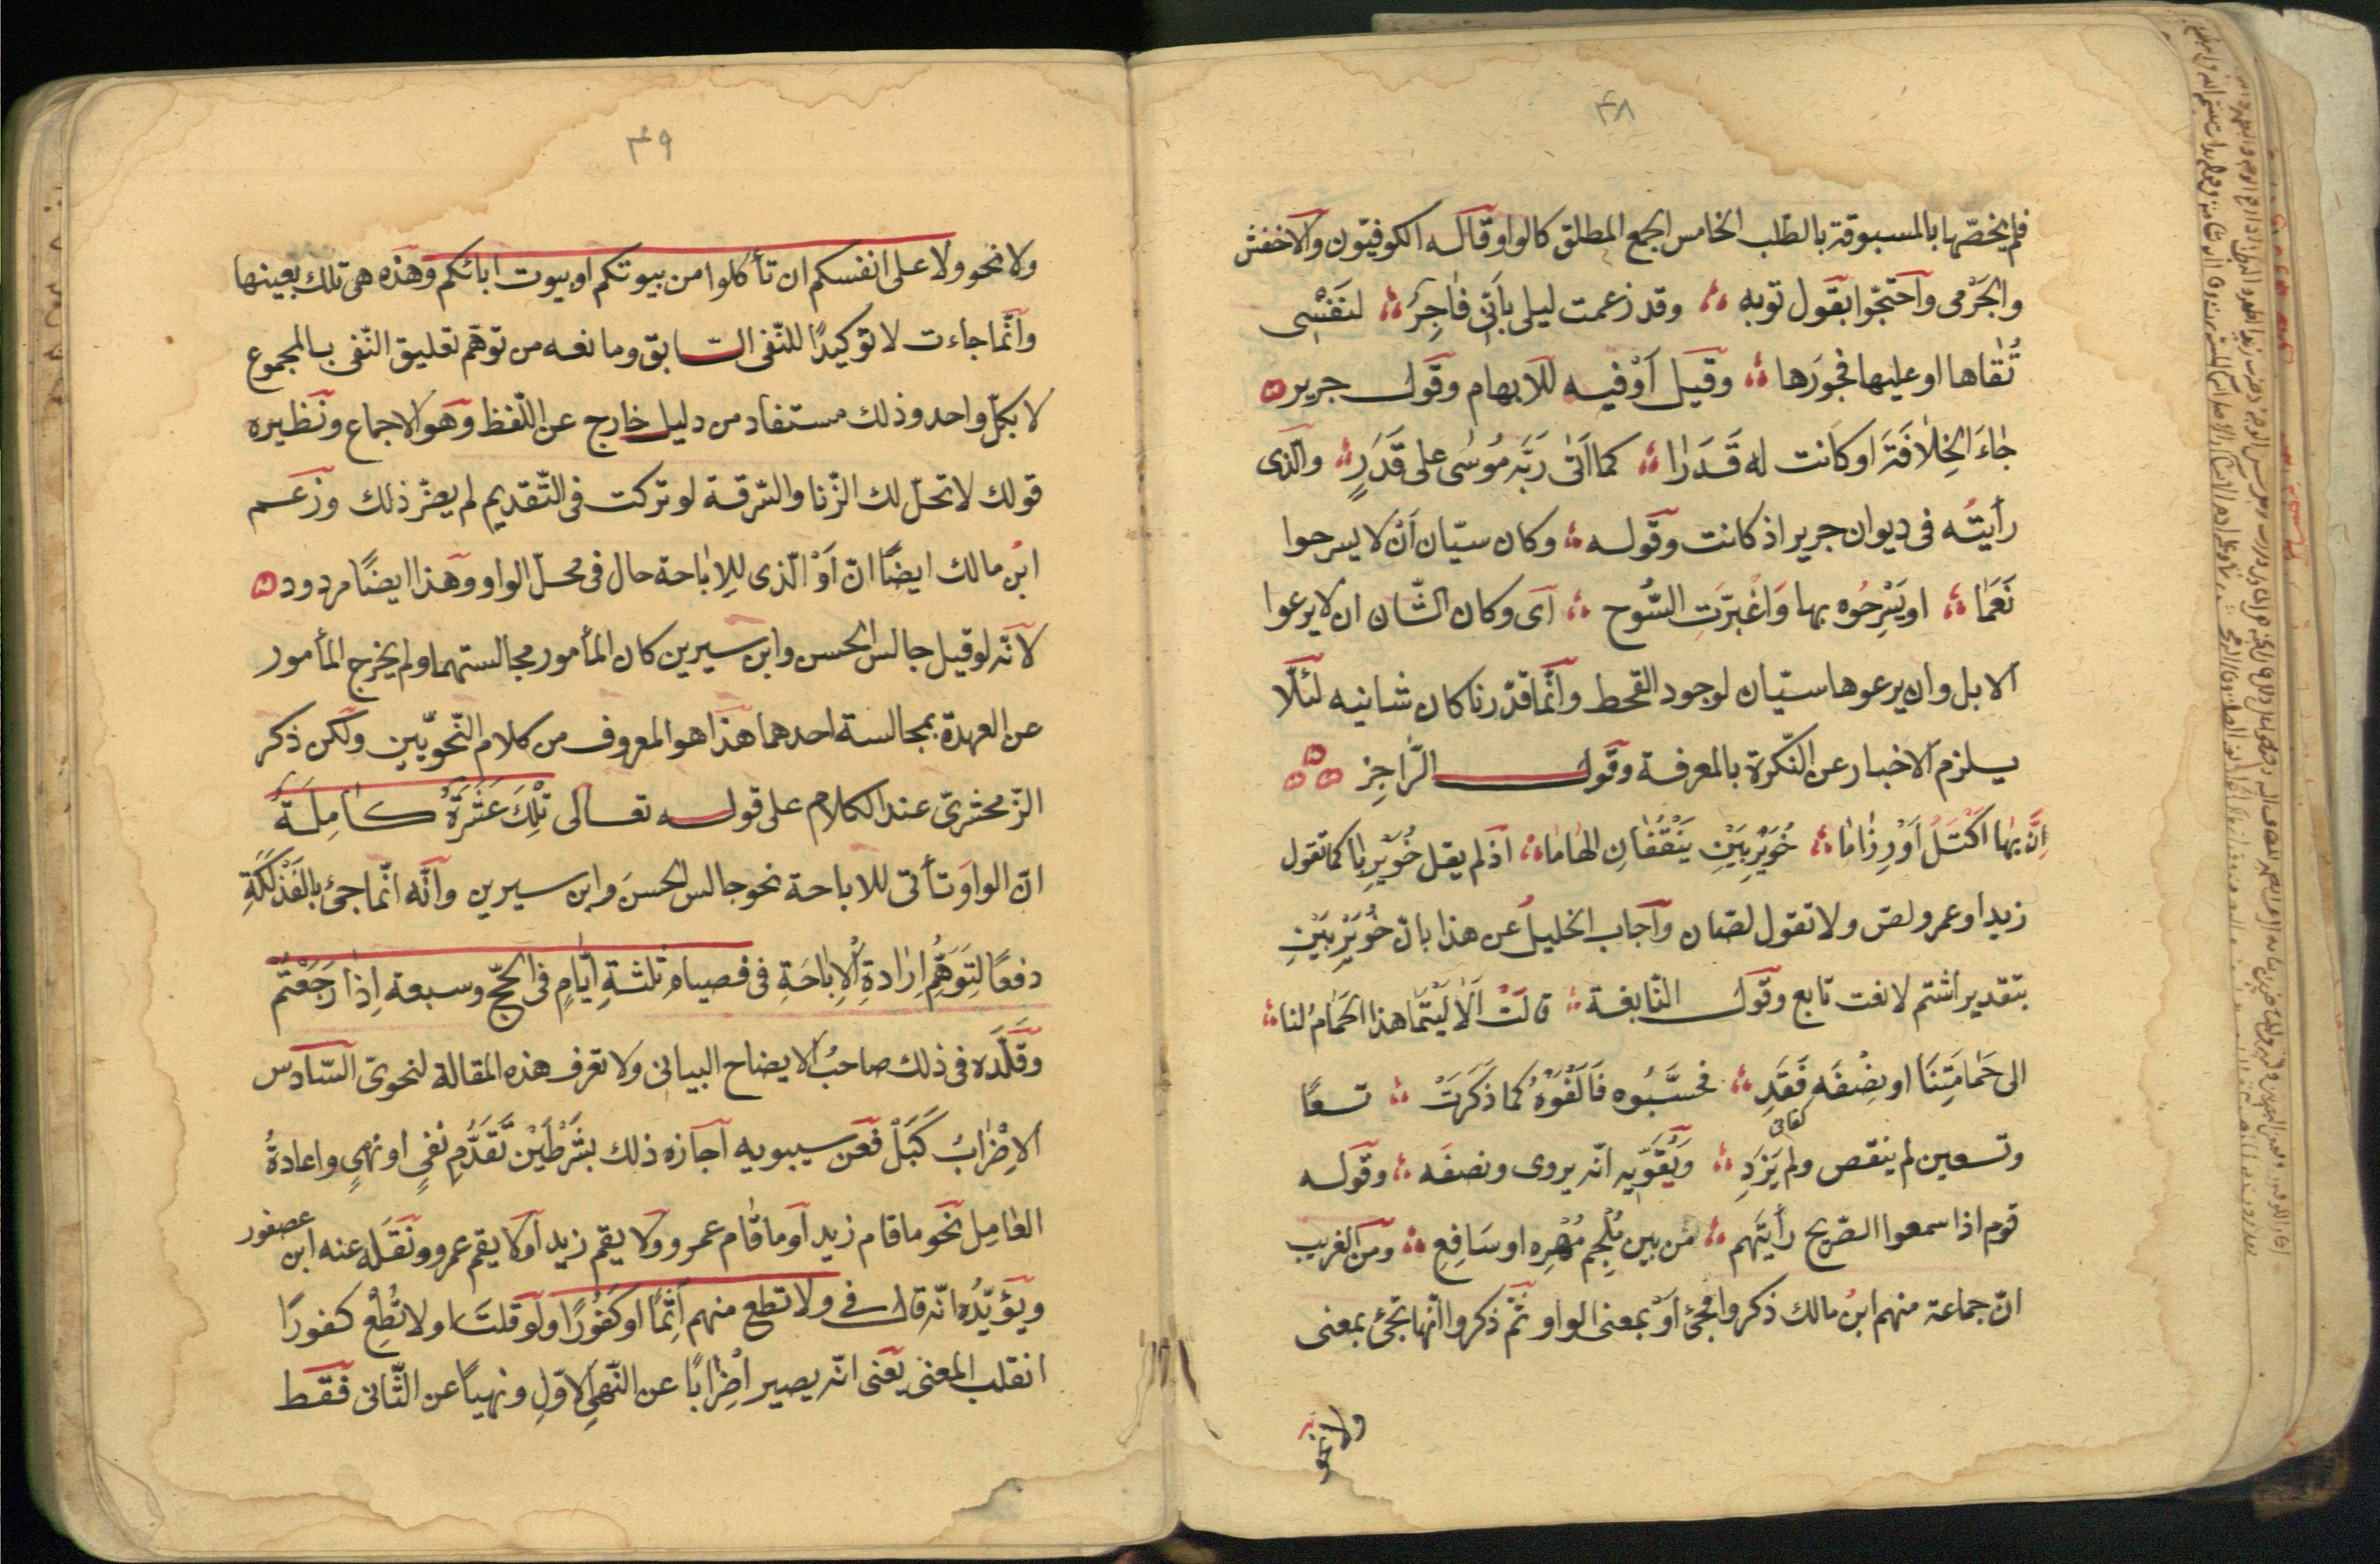 ۴۸
فلم يخصّها بالمسبوقة بالطلب الخامس الجمع المطلق كالواو قاله الكوفيّون والاخفش
والجَرْمى واحتجّوا بقول توبه وقد زعمت ليلى بأَنّى فاجِرٌ لنَفْسِى
تُقٰاها او عليها فجورَها وقيل اَوْ فيه للابهام وقول جرير
جٰاءَ الخِلٰافَةَ او كانت له قَدَرٰا كما اَتٰى رَبَّه مُوسٰى على قَدَرٍ والّذى
رأيته فى ديوان جرير اذ كانت وقوله وكان سيّان اَنْ لا يسرحوا
نَعَمٰا او يَسْرِحُوه بها وَاغْبَرَّتِ السُّوح اى وكان الشّان ان لا يرعوا
الابل وان يرعوها سيّان لوجود القحط وانّما قدّرنا كان شانيه لئلّا
يلزم الاخبار عن النّكرة بالمعرفة وقول الرّاجِز
اِنّ بهٰا اَكْتَلَ اَوْ رِزٰامٰا خُوَيْرِبَيْنِ يَنْقُفٰانِ الهٰامٰا اذ لم يقل خُوَيْرِبا كما تقول
زيد او عمرو لصّ ولا تقول لصّان واجاب الخليل عن هذا بانّ خُوَيْرِبَيْنِ
بتقدير اشتم لا نعت تابع وقول النّابغة قالَتْ اَلٰا لَيْتَما هذا الحَمٰامُ لنا
الى حَمٰامَتِنَا او نِصْفَه فَقَدِ فحسَّبُوه فَاَلْفَوْهُ كما ذَكَرَتْ تسعًا
وتسعين لم ينقص ولم يَزِدِ ويُقَوّيه انّه يروى ونصفَه وقوله
قوم اذا سمعوا الصّريخ رأيتَهم من بين مُلْجِم مُهْرِه او سَافِعِ ومن الغريب
انّ جماعة منهم ابنُ مالك ذكروا مجئ اَوْ بمعنى الواو ثمّ ذكروا انّها تجئ بمعنى
ولا نحو
۴۹
ولا نحو ولا على انفسكم ان تأكلوا من بيوتكم او بيوت ابائكم وهذه هى تلك بعينها
وانّما جاءت لا توكيدًا للنّفى السّابق ومانعه من توهّم تعليق النّفى بالمجموع
لا بكلّ واحد وذلك مستفاد من دليل خارج عن اللّفظ وهو الاجماع ونظيره
قولك لا تحلّ لك الزّنا والسّرقة لو تركت فى التّقديم لم يضرّ ذلك وزعم
ابن مالك ايضًا انّ اَوْ الّذى للاِباحة حال فى محلّ الواو وهذا ايضًا مردود
لانّه لو قيل جالس الحسن وابن سيرين كان المأمور مجالستهما ولم يخرج المأمور
عن العهدة بمجالسة احدهما هذا هو المعروف من كلام النّحويّين ولكن ذكر
الزّمخشرىّ عند الكلام على قوله تعالى تِلْكَ عَشَرَةٌ كٰامِلَةٌ
انّ الواو تأتى للاباحة نحو جالس الحسنَ وابن سيرين وانّه انّما جئ بالفَذْلَكَةِ
دفعًا لِتَوَهُّمِ اِرٰادةِ الْاِباحَةِ فى فصيام ثلثةِ ايّامٍ فى الحجّ وسبعة اِذٰا رَجَعْتُمْ
وقلّده فى ذلك صاحبُ الايضاح البيانى ولا تعرف هذه المقالة لنحوىّ السّادس
الاِضْرٰابُ كَبَلْ فعن سيبويه اجازه ذلك بشَرْطَيْن تَقَدُّمِ نفىٍ او نهىٍ واعادةُ
العامِل نحو ما قام زيد او ما قام عمرو ولا يقم زيد او لا يقم عمرو ونَقَلَه عنه ابن عصفور
ويؤيّدُه انّه قال فى ولا تطع منهم اٰثِمًا او كَفُورًا ولو قلتَ او لا تُطِعْ كفورًا
انقلب المعنى يعنى انّه يصير اِضْرٰابًا عن النّهىِ الاوّلِ ونهيًا عن الثّانى فقط